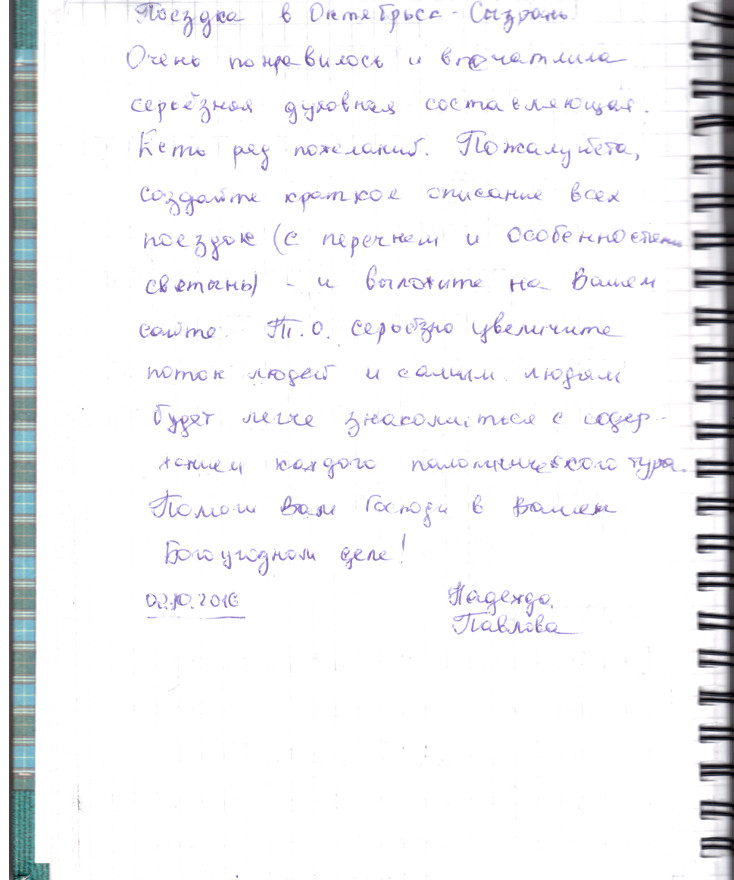 Поездка в Октябрьск - Сызрань.
Очень понравилось и впечатлила
серьёзная духовная составляющая.
Есть ряд пожеланий. Пожалуйста,
создайте краткое описание всех
поездок (с перечнем и особенностями
святынь) - и выложите на Вашем
сайте. Т.О. серьёзно увеличите
поток людей и самим людям
будет легче знакомиться с содер-
жанием каждого паломнического тура.
Помоги Вам Господи в Вашем
Богоугодном деле!
02.10.2016 Надежда
Павлова